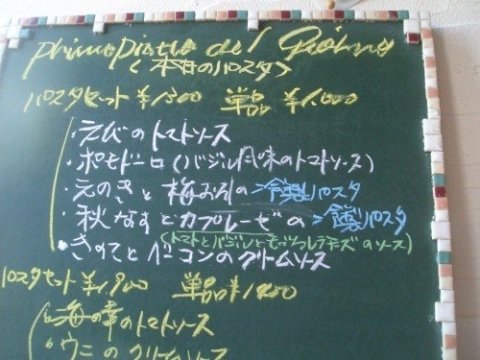 primo piatto del Giorno
〈本日のパスタ〉
パスタセット ¥1300 単品 ¥1,000
・えびのトマトソース
・ポモドーロ(バジル風味のトマトソース)
・えのきと梅おろしの冷製パスタ
・秋なすとカプレーゼの冷製パスタ
(トマトとバジルとモッツァレラチーズのソース)
・きのことベーコンのクリームソース
パスタセット ¥1,700 単品 ¥1400
・海の幸のトマトソース
・ウニのクリームソース